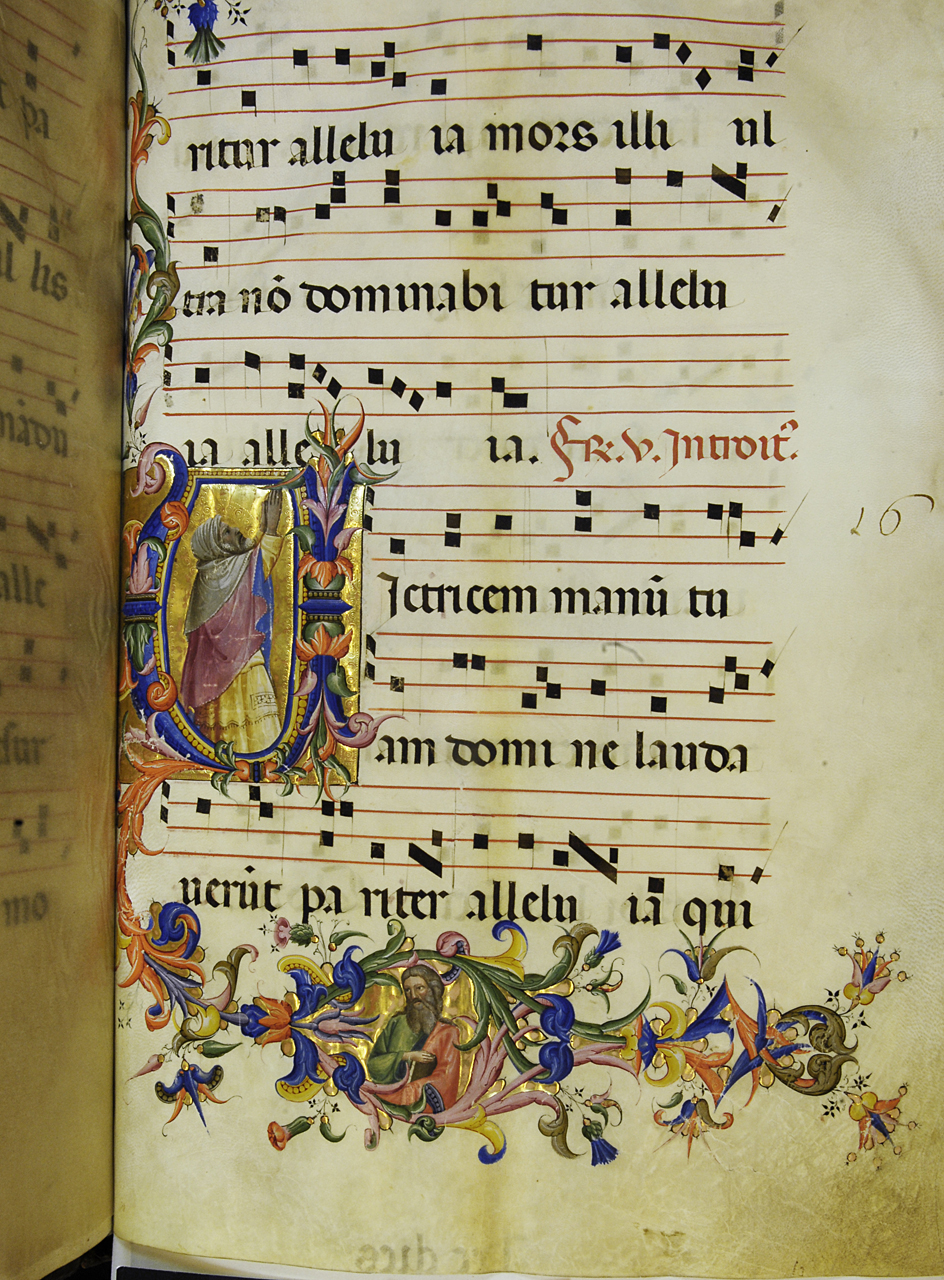 ritur allelu ia mors illi ul
tra nō dominabi tur allelu
ia alle lu ia. Fr. V. Introit᷒.
VIctricem manū tu
16
am domi ne lauda
uerūt pa riter allelu ia qui
pa
al lis
alle
mo